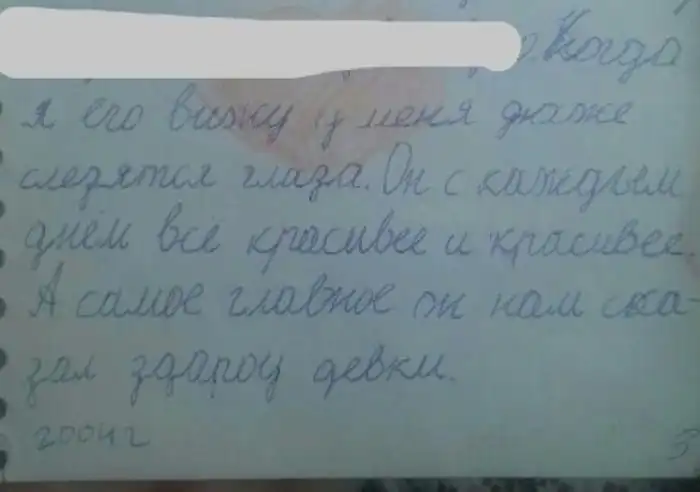 Когда
я его вижу у меня даже
слезятся глаза. Он с каждым
днём всё красивее и красивее.
А самое главное он нам ска-
зал здароу девки.
2004г
3